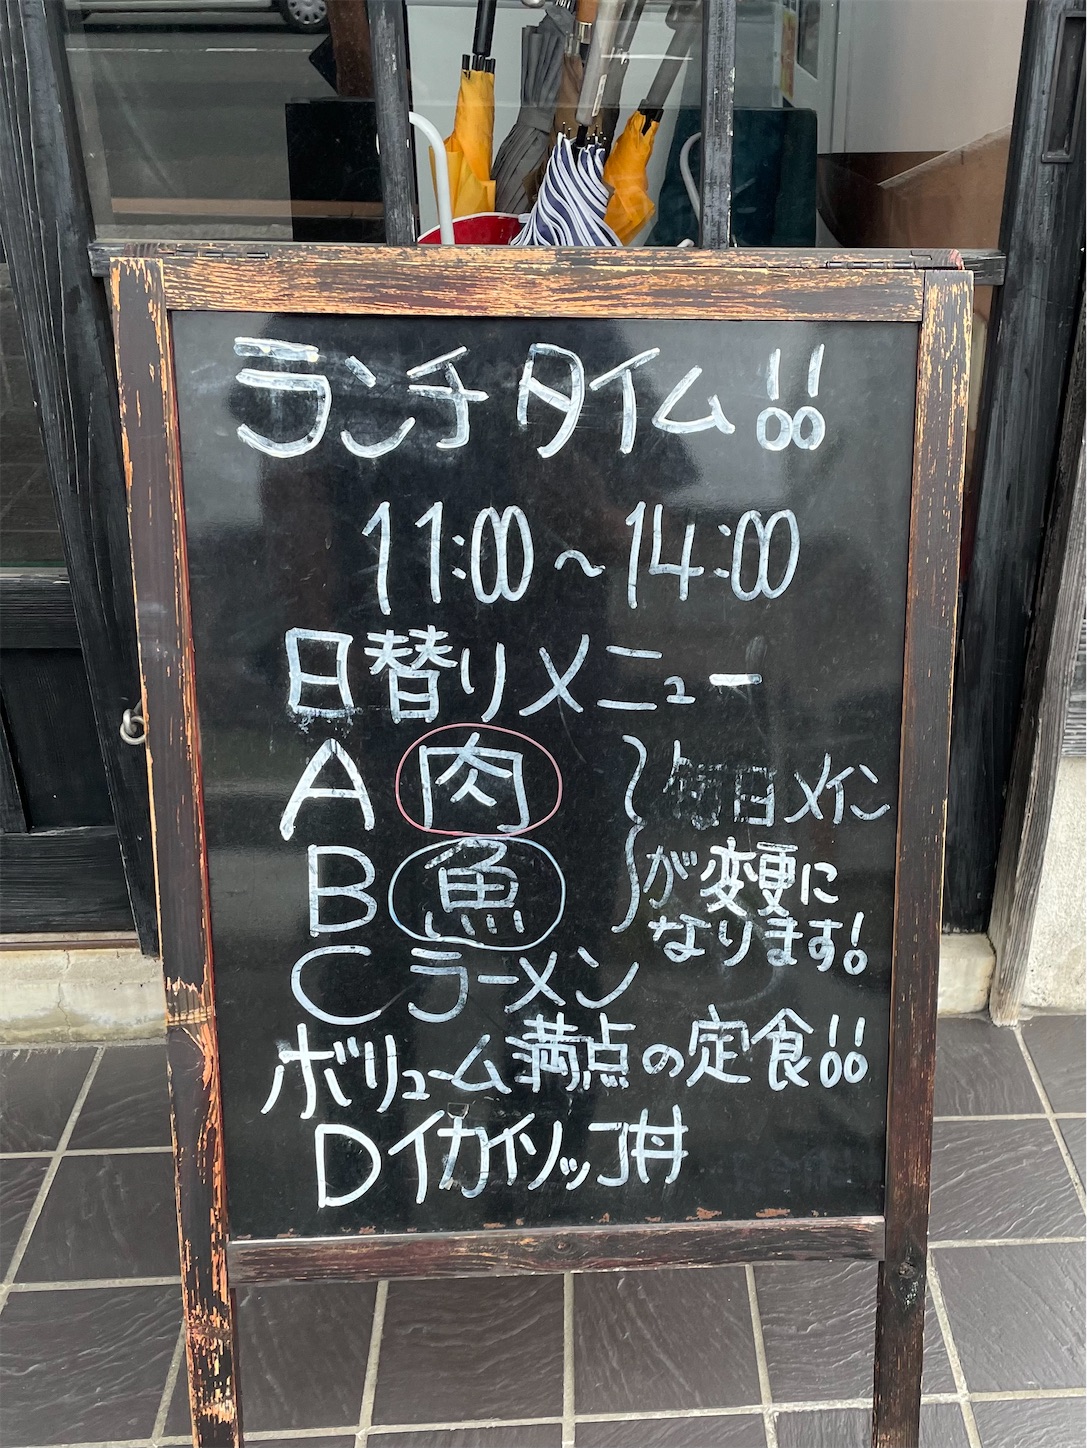 ランチタイム!!
11:00～14:00
日替りメニュー
A 肉
B 魚
毎日メイン
が変更に
なります!
C ラーメン
ボリューム満点の定食!!
D イカイソッコ丼